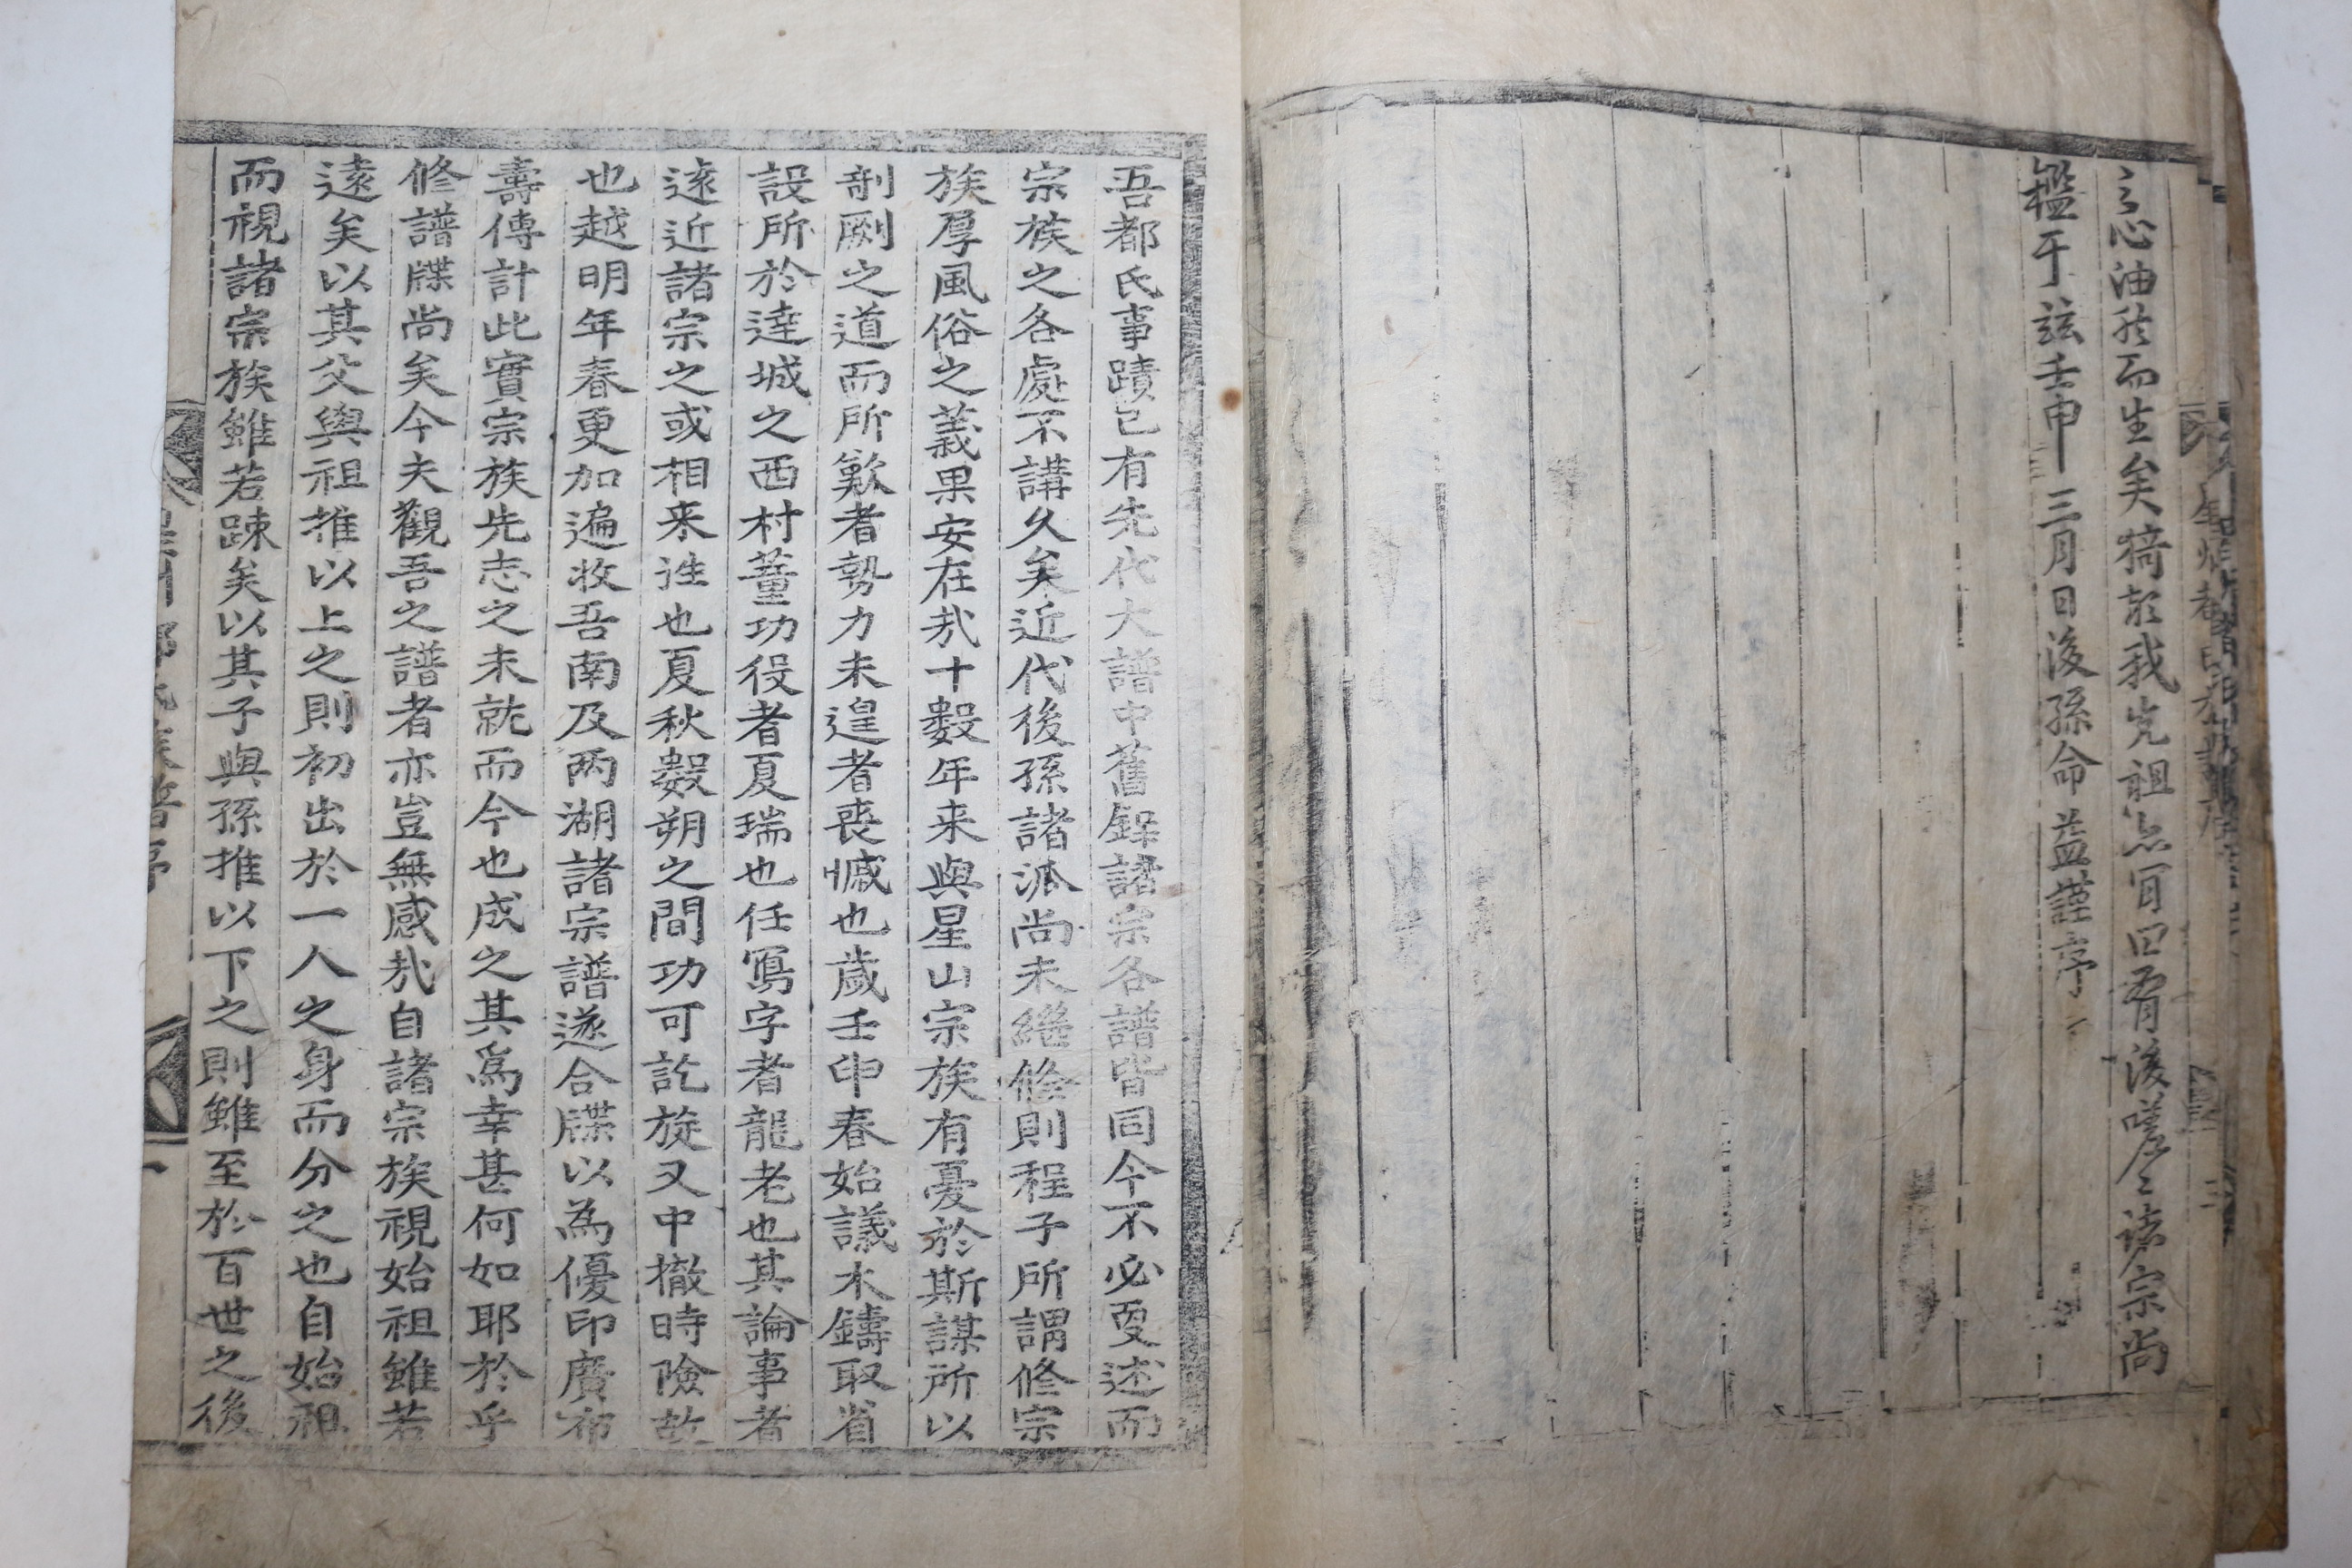 之心油然而生矣猗歟我先祖亦宜曰有後嗟嗟諸宗尚
鑑于玆壬申三月日後孫命益謹序
吾都氏事蹟已有先代大譜中舊錄諸宗各譜皆同今不必更述而
宗族之各處不講久矣近代後孫諸派尚未繼修則程子所謂修宗
族厚風俗之義果安在㢤十數年来與星山宗族有憂於斯謀所以
剞劂之道而所歉者勢力未遑者喪慽也歲壬申春始議木鑄取省
設所於達城之西村董功役者夏瑞也任寫字者龍老也其論事者
遠近諸宗之或相来徃也夏秋數朔之間功可訖旋又中撤時險故
也越明年春更加遍收吾南及兩湖諸宗譜遂合牒以為優印廣布
壽傳計此實宗族先志之未就而今也成之其爲幸甚何如耶於乎
修譜牒尚矣今夫觀吾之譜者亦豈無感㢤自諸宗族視始祖雖若
遠矣以其父與祖推以上之則初出於一人之身而分之也自始祖
而視諸宗族雖若踈矣以其子與孫推以下之則雖至於百世之後
氏族譜序 一